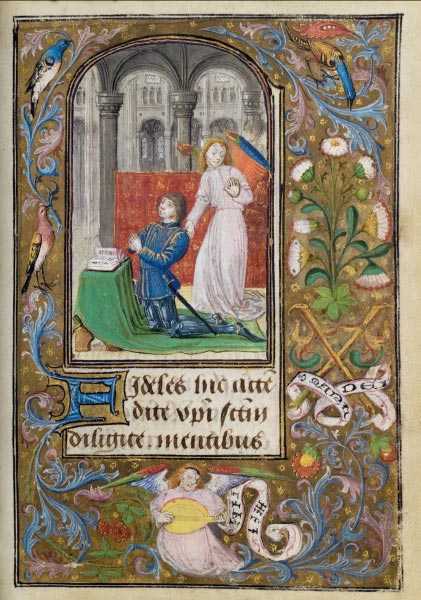 Fideles hic atte̅
dite xp̅i sc̅m
diligite. mentibus
DEI